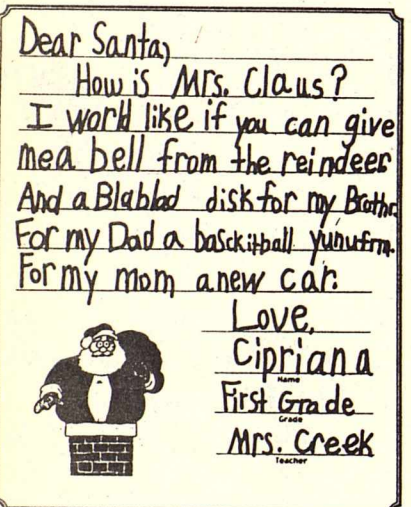 Dear Santa,
How is Mrs. Claus?
I world like if you can give
me a bell from the reindeer
And a Blablad disk for my Brothr.
For my Dad a basckitball yunufrm.
For my mom a new car.
Love,
Cipriana
Name
First Grade
Grade
Mrs. Creek
Teacher